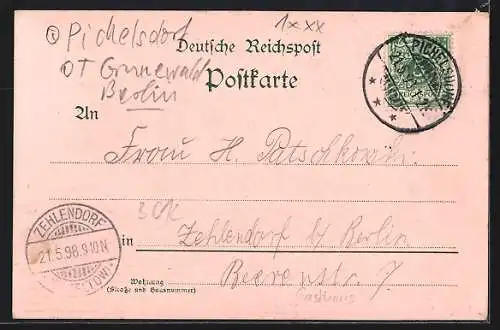 ① Pichelsdorf 1xxx
OT Grunewald
Berlin
Deutsche Reichspost
Postkarte
An
PICHELSDORF
Frau H. Patschkowski.
30K
ZEHLENDORF
21.5.98.9-10N
in Zehlendorf b/ Berlin
Wohnung
(Straße und Hausnummer)
Beerenstr. 7